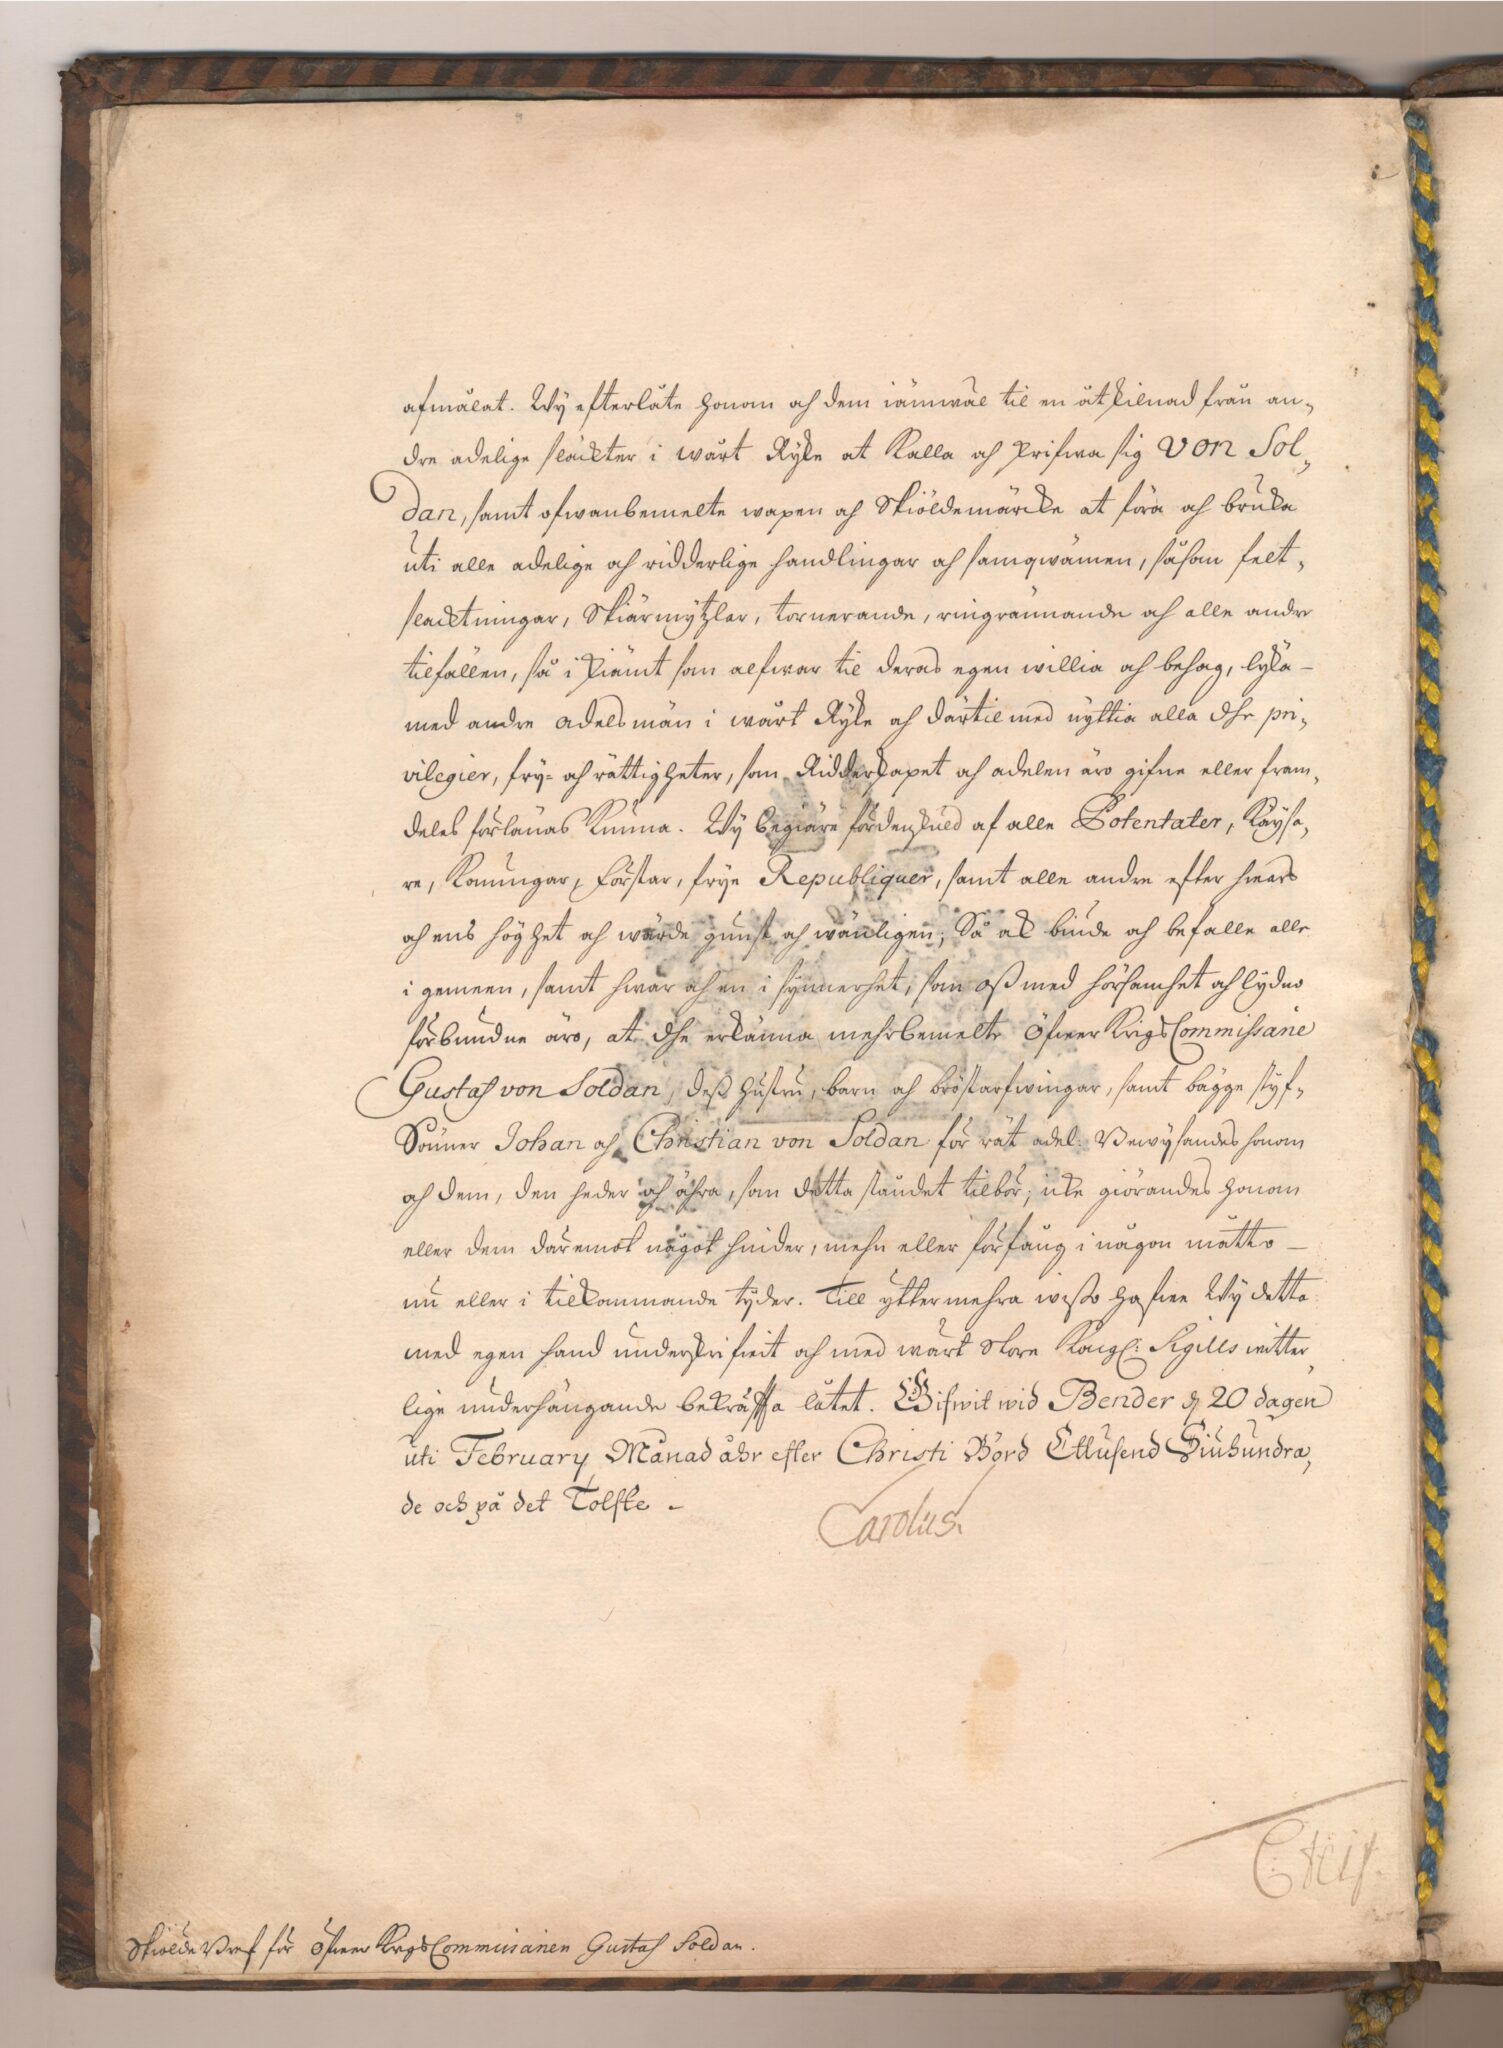 afmålat. Wy efterlåte honom och dem iämwäl til en åtskilnad från an-
dre adelige släckter i wårt Ryke at kalla och skrifwa sig von Sol-
dan, samt ofwanbemelte wapen och Skiöldemärcke at föra och bruka
uti alle adelige och ridderlige handlingar och samqwämen, såsom felt-
slacktningar, Skiärmytzlar, tornerande, ringrännande och alle andre
tilfällen, så i skiämt som alfwar til deras egen willia och behag, lyka
med andre adelsmän i wårt Ryke och därtil med nyttia alla dhe pri-
vilegier, fry- och rättigheter, som Ridderskapet och adelen äro gifne eller fram-
deles förlänas kunna. Wy begiäre fördenskuld af alle Potentater, Käysa-
re, Konungar, Förstar, frye Republiquer, samt alle andre efter hwars
och ens höghet och wärde gunst och wänligen; Så ock biude och befalle alle
i gemeen, samt hwar och en i synnerhet, som oss med hörsamhet och lydno
förbundne äro, at dhe erkänna mehrbemelte Öfwer KrigsCommissarie
Gustaf von Soldan, dess hustru, barn och bröstarfwingar, samt bägge styf-
Sönner Johan och Christian von Soldan för rät adel. Bewysandes honom
och dem, den heder och ähra, som detta ståndet tilbör; icke giörandes honom
eller dem däremot något hinder, mehn eller förfång i någon måtto
nu eller i tilkommande tyder. Till yttermehra wisso hafwe Wy detta
med egen hand underskrifwit och med wårt Store Kongl: Sigills witter
lige underhängande bekräffta låtet. Gifwit wid Bender d 20 dagen
uti February Månad åhr efter Christi Börd Ettusend Siuhundra-
de och på det Tolfte
Carolus.
Skiölde Bref för Öfwer KrigsCommissarien Gustaf Soldan.